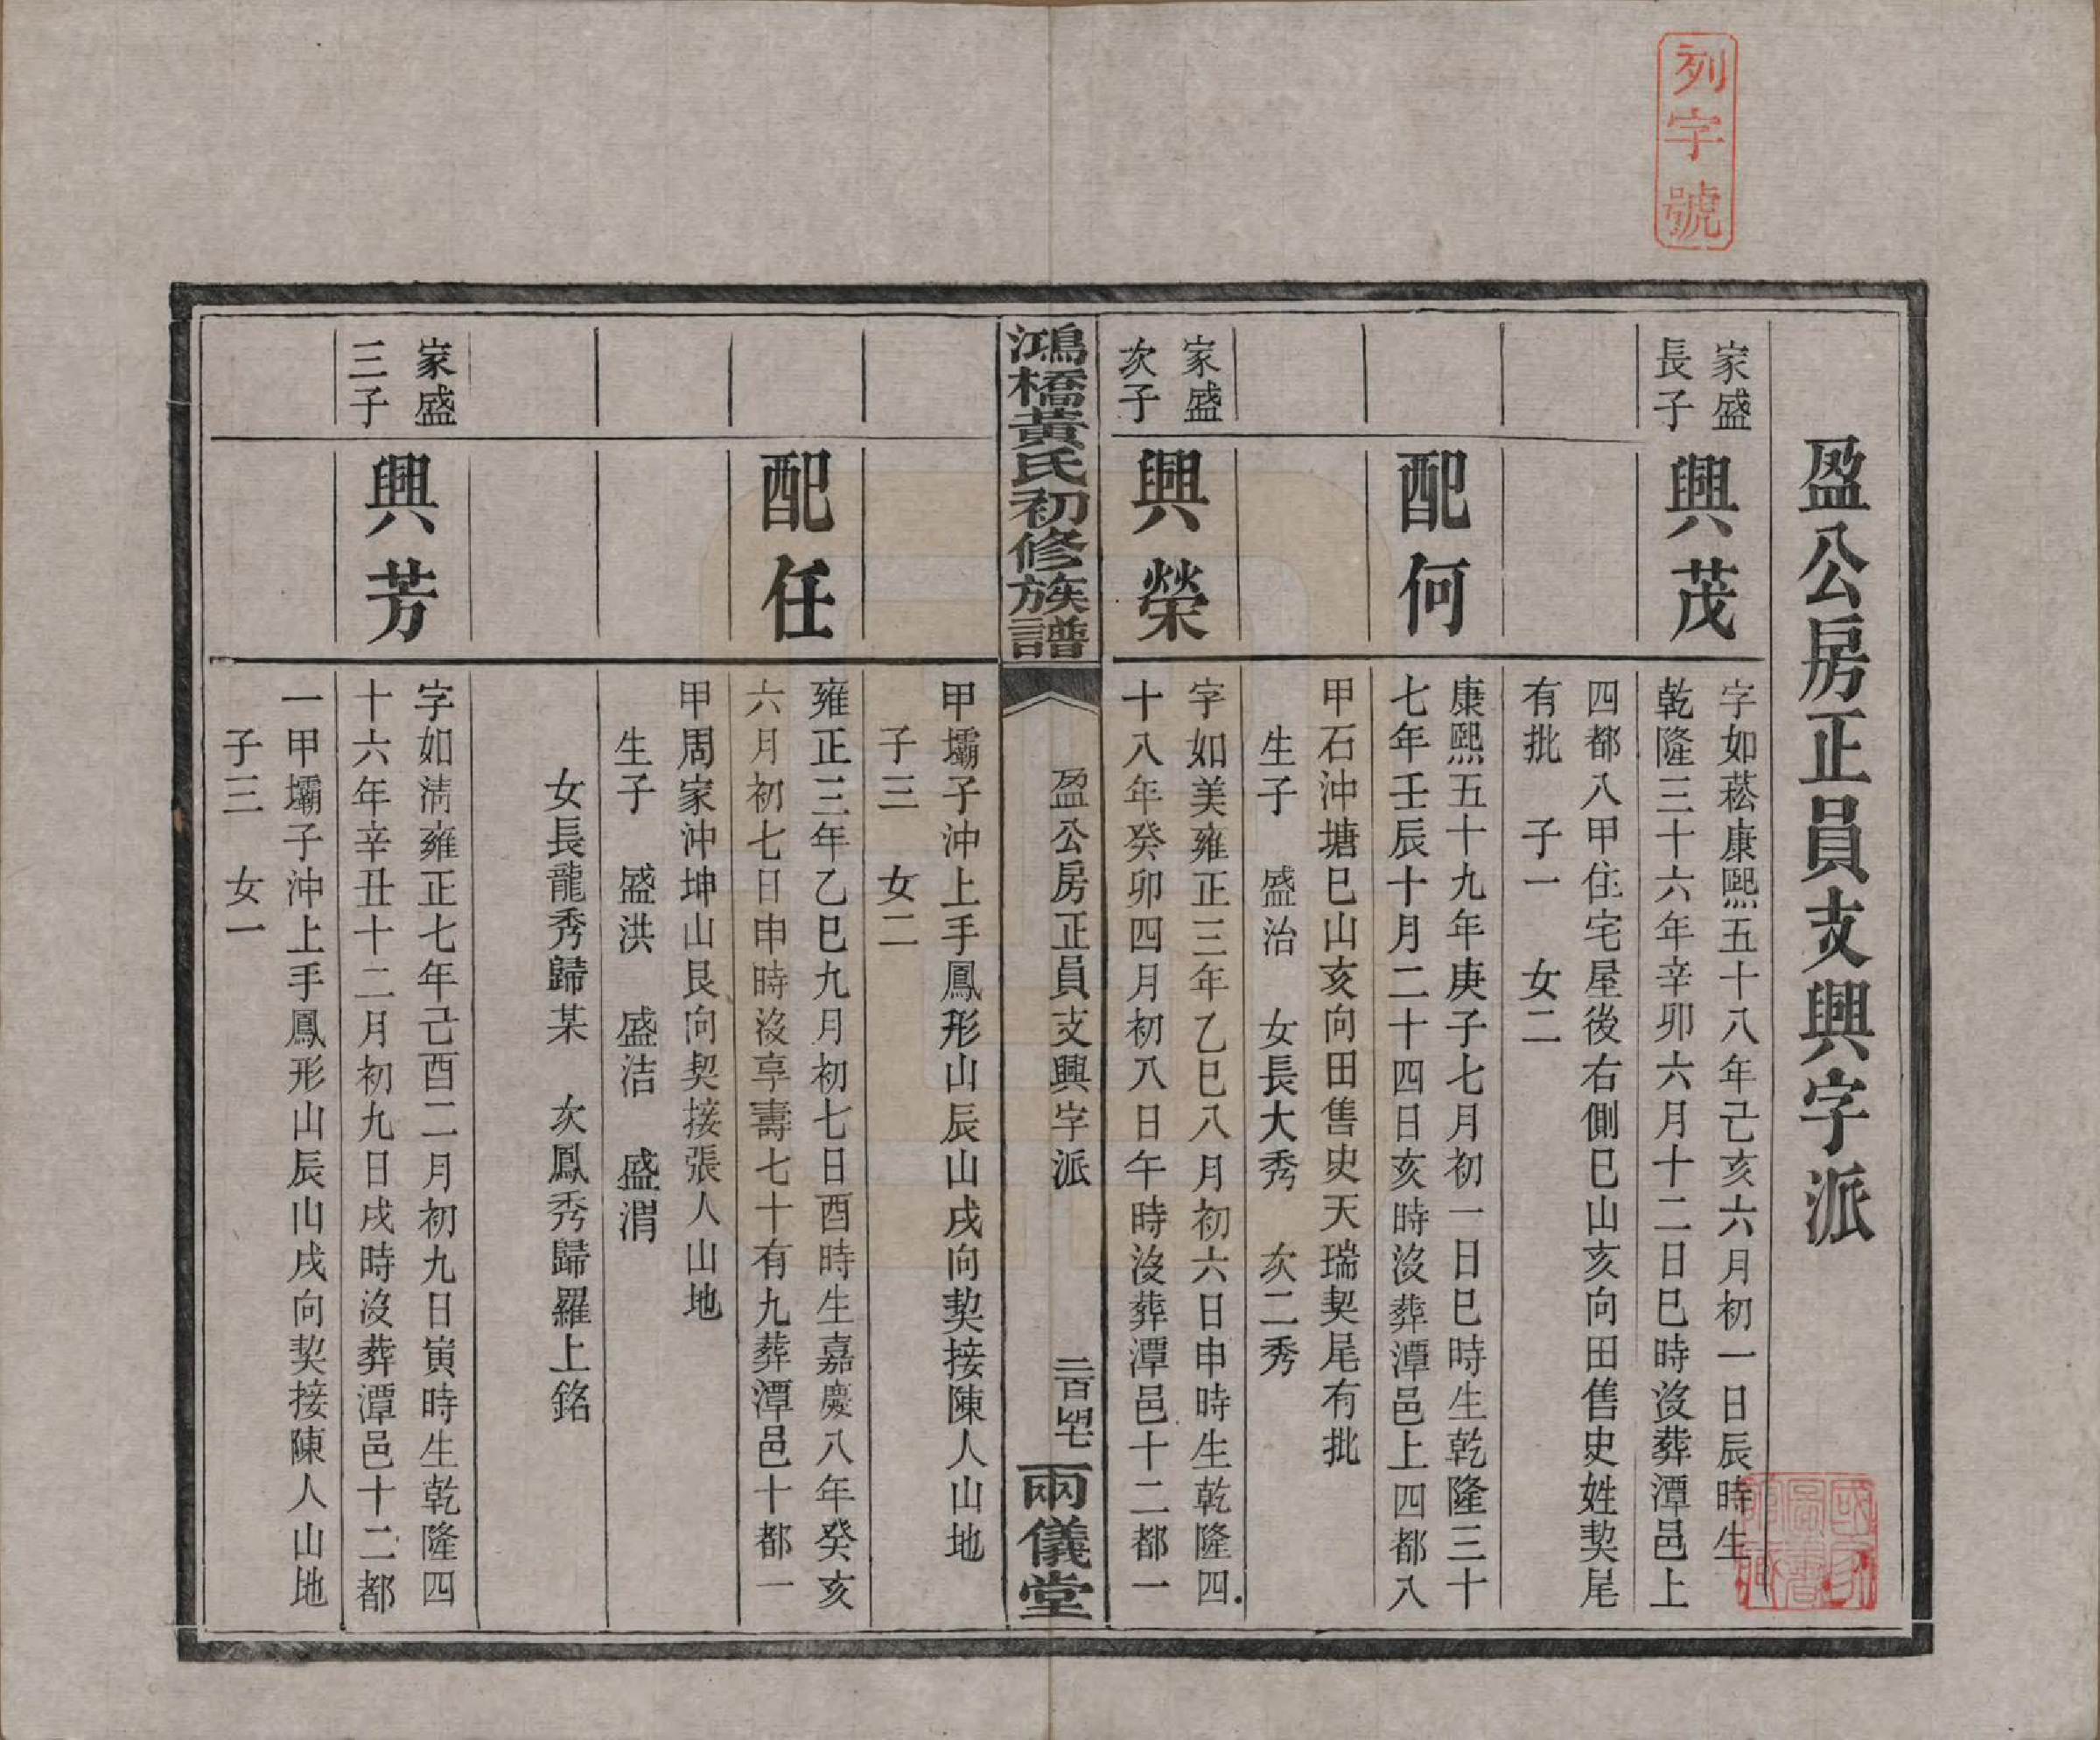 列字號
盈公房正員支興字派
家盛
長子
興茂
字如菘康熙五十八年己亥六月初一日辰時生
乾隆三十六年辛卯六月十二日巳時沒葬潭邑上
四都八甲住宅屋後右側巳山亥向田售史姓契尾
有批 子一 女二
配何
康熙五十九年庚子七月初一日巳時生乾隆三十
七年壬辰十月二十四日亥時沒葬潭邑上四都八
甲石沖塘巳山亥向田售史天瑞契尾有批
生子 盛治 女長大秀 次二秀
家盛
次子
興榮
字如美雍正三年乙巳八月初六日申時生乾隆四
十八年癸卯四月初八日午時沒葬潭邑十二都一
鴻橋黃氏初修族譜
盈公房正員支興字派
二百四七
兩儀堂
甲壩子沖上手鳳形山辰山戌向契接陳人山地
子三 女二
配任
雍正三年乙巳九月初七日酉時生嘉慶八年癸亥
六月初七日申時沒享壽七十有九葬潭邑十都一
甲周家沖坤山艮向契接張人山地
生子 盛洪 盛洁 盛渭
女長龍秀歸某 次鳳秀歸羅上銘
家盛
三子
興芳
字如清雍正七年己酉二月初九日寅時生乾隆四
十六年辛丑十二月初九日戌時沒葬潭邑十二都
一甲壩子沖上手鳳形山辰山戌向契接陳人山地
子三 女一
國家圖書館藏